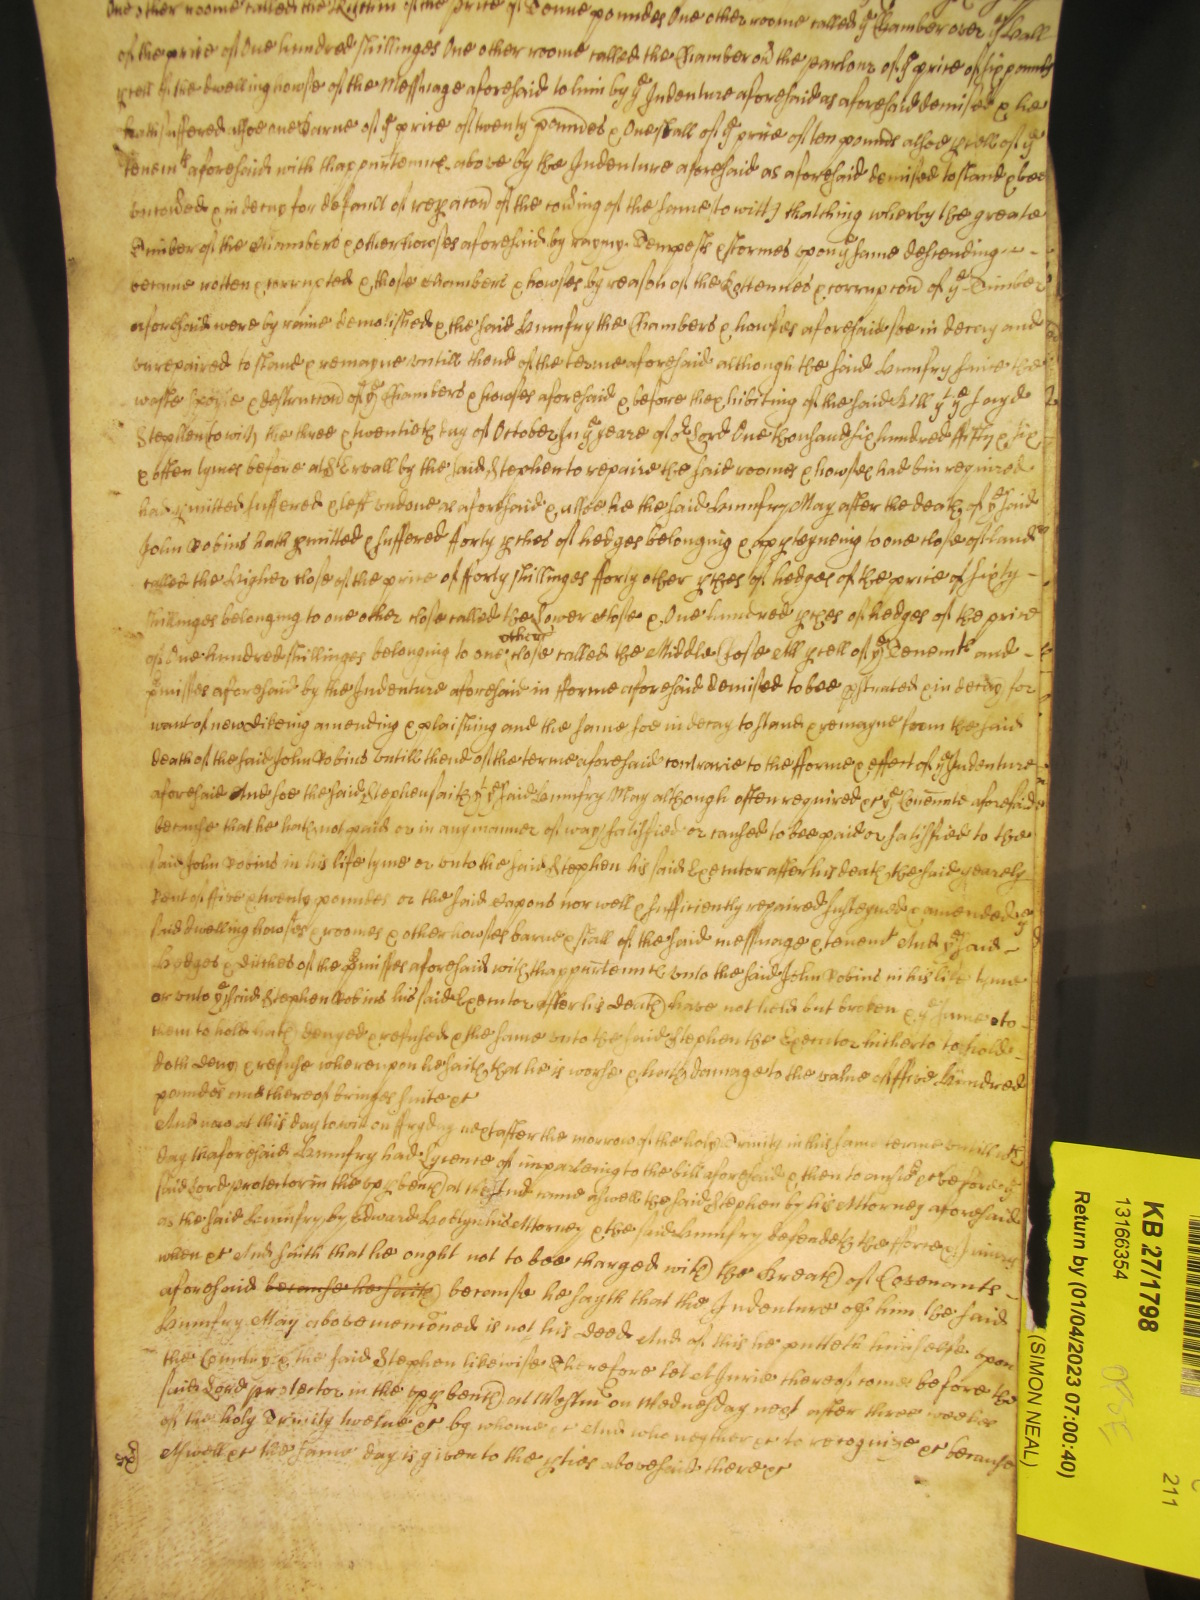 One other roome called the Kitchin of the price of Tenne poundes One other roome called yͤ Chamber over yͤ Hall
of the price of One hundred shillinges One other roome called the Chamber oũ the parlour of yͤ price of six poundes
ꝑcell of the dwelling howse of the Messuage aforesaid to him by yͤ Indenture aforesaid as aforesaid demised & he
hath suffered alsoe one Barne of yͤ price of twenty poundes & One stall of yͤ price of ten pounds alsoe ꝑcell of yͤ
Tenemᵗˢ aforesaid with thappurteñncꝭ above by the Indenture aforesaid as aforesaid demised to stand & bee
uncovered & in decay for default of reꝑacoñ of the coũing of the same (to witt) thatching wherby the greate
Timber of the Chambers & other howses aforesaid by rayny Tempests & stormes upon yͤ same descending
became rotten & corrupted & those Chambers & howses by reason of the Rottennes & corrupcoñ of yͤ Timber
aforesaid were by raine demolished & the said Humfry the Chambers & howses aforesaid soe in decay and
unrepaired to stand & remayne untill thend of the terme aforesaid although the said Humfry since the
waste spoyle & destruccoñ of yͤ Chambers & howses aforesaid & before the exhibiting of the said Bill of yͤ sayd
Stephen (to witt) the three & twentieth day of October In yͤ yeare of oͬ Lord One thousand six hundred fifty & six
& often tymes before at by the said Stephen to repaire the said roomes & howses had bin required
had ꝑmitted suffered & left undone as aforesaid & alsoe he the said Humfry May after the death of yͤ said
John Robins hath ꝑmitted & suffered forty ꝑches of hedges belonging & appꝑteyneing to one close of land
called the Higher close of the price of forty shillinges fforty other ꝑches of hedges of the price of sixty
shillinges belonging to one other close called the Lower close & One hundred ꝑches of hedges of the price
of One hundred shillinges belonging to one other close called the Middle Close All ꝑcell of yͤ Tenemᵗˢ and
p̃misses aforesaid by the Indenture aforesaid in fforme aforesaid demised to bee ꝓstrated & in decay for
want of new dikeing amending & plaishing and the same soe in decay to stand & remayne from the said
death of the said John Robins untill thend of the terme aforesaid contrarie to the fforme & effect of yͤ Indenture
aforesaid And soe the said Stephen saith yͭ yͤ said Humfry May although often required &c yͤ Coveñnte aforesaid
because that he hath not paid or in any manner of way satisfied or caused to bee paid or satisfied to the
said John Robins in his life tyme or unto the said Stephen his said Executor after his death the said yearely
Rent of five & twenty poundes or the said capons nor well & sufficiently repaired susteyned & amended yͤ
said dwelling howses & roomes & other howses barne & stall of the said messuage & tenemᵗ And yͤ said
Hedges & ditches of the p̃misses aforesaid with thappurteñncꝭ unto the said John Robins in his life tyme
or unto yͤ said Stephen Robins his said Executor after his death have not held but broken & yͤ same to
them to hold hath denyed & refused & the same unto the said Stephen the Executor hitherto to hold
doth deny & refuse whereupon he saith that he is worse & hath damage to the value of ffive Hundred
poundes and thereof bringes suite &c
And now at this day to witt on ffryday next after the morrow of the holy Trinity in this same terme untill wᶜʰ
day thaforesaid Humfry had Lycence of imparleing to the bill aforesaid & then to answꝰ &c before yͤ
said Lord Protector in the upꝑ bench at came aswell the said Stephen by his Attorney aforesaid
as the said Humfry by Edward Hoblyn his Attorney & the said Humfry defendeth the fforce & Iniury
when &c And saith that he ought not to bee charged with the Breach of Covenants
aforesaid because he saith because he sayth that the Indenture of him the said
Humfry May abovementioned is not his deed And of this he putteth himselfe upon
the Country & the said Stephen likewise Therefore let A Jurie thereof come before the
said Lord Protector in the upꝑ bench at Westm̃ on Wednesday next after three weekes
of the holy Trinity twelve &c by whome &c And who neyther &c to recognize &c because
Aswell &c the same day is given to the ꝑties abovesaid there &c
KB 27/1798
13166354
Return by (01/04/2023 07:00:40)
(SIMON NEAL)
211